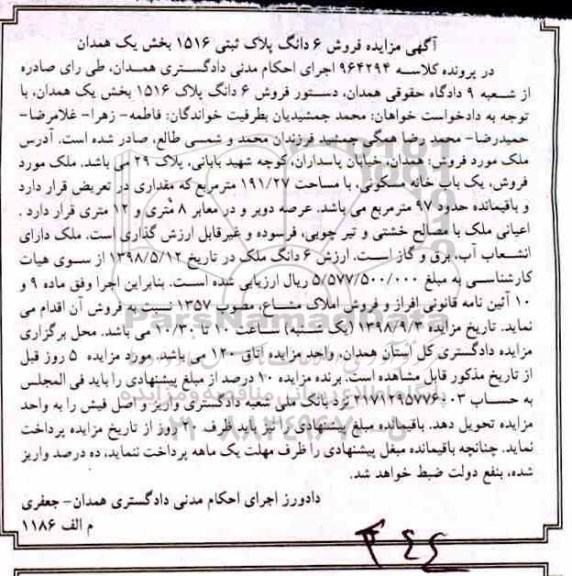 آگهی مزایده فروش ۶ دانگ پلاک ثبتی ۱۵۱۶ بخش یک همدان
در پرونده کلاسه ۹۶۴۲۹۴ اجرای احکام مدنی دادگستری همدان، طی رای صادره
از شعبه ۹ دادگاه حقوقی همدان، دستور فروش ۶ دانگ پلاک ۱۵۱۶ بخش یک همدان، با
توجه به دادخواست خواهان: محمد جمشیدیان بطرفیت خواندگان: فاطمه- زهرا- غلامرضا-
حمیدرضا- محمد رضا همگی جمشید فرزندان محمد و شمسی طالع، صادر شده است. آدرس
ملک مورد فروش: همدان، خیابان پاسداران، کوچه شهید بابانی، پلاک ۲۹ می باشد. ملک مورد
فروش، یک باب خانه مسکونی، با مساحت ۱۹۱/۲۷ مترمربع که مقداری در تعریض قرار دارد
و باقیمانده حدود ۹۷ مترمربع می باشد. عرصه دوبر و در معابر ۸ متری و ۱۲ متری قرار دارد .
اعیانی ملک با مصالح خشتی و تیر چوبی، فرسوده و غیرقابل ارزش گذاری است. ملک دارای
انشعاب آب، برق و گاز است. ارزش ۶ دانگ ملک در تاریخ ۱۳۹۸/۵/۱۲ از سوی هیات
کارشناسی به مبلغ ۵/۵۷۷/۵۰۰/۰۰۰ ریال ارزیابی شده است. بنابراین اجرا وفق ماده ۹ و
۱۰ آئین نامه قانونی افراز و فروش املاک مشاع، مصوب ۱۳۵۷ نسبت به فروش آن اقدام می
نماید. تاریخ مزایده ۱۳۹۸/۹/۳ (یکشنبه) ساعت ۱۰ تا ۱۰/۳۰ می باشد. محل برگزاری
مزایده دادگستری کل استان همدان، واحد مزایده اتاق ۱۲۰ می باشد. مورد مزایده ۵ روز قبل
از تاریخ مذکور قابل مشاهده است. برنده مزایده ۱۰ درصد از مبلغ پیشنهادی را باید فی المجلس
به حساب نزد بانک ملی شعبه دادگستری واریز و اصل فیش را به واحد
مزایده تحویل دهد. باقیمانده مبلغ پیشنهادی را نیز باید ظرف ۳۰ روز از تاریخ مزایده پرداخت
نماید. چنانچه باقیمانده مبلغ پیشنهادی را ظرف مهلت یک ماهه پرداخت ننماید، ده درصد واریز
شده، بنفع دولت ضبط خواهد شد.
دادورز اجرای احکام مدنی دادگستری همدان- جعفری
م الف ۱۱۸۶
ParsNamadData